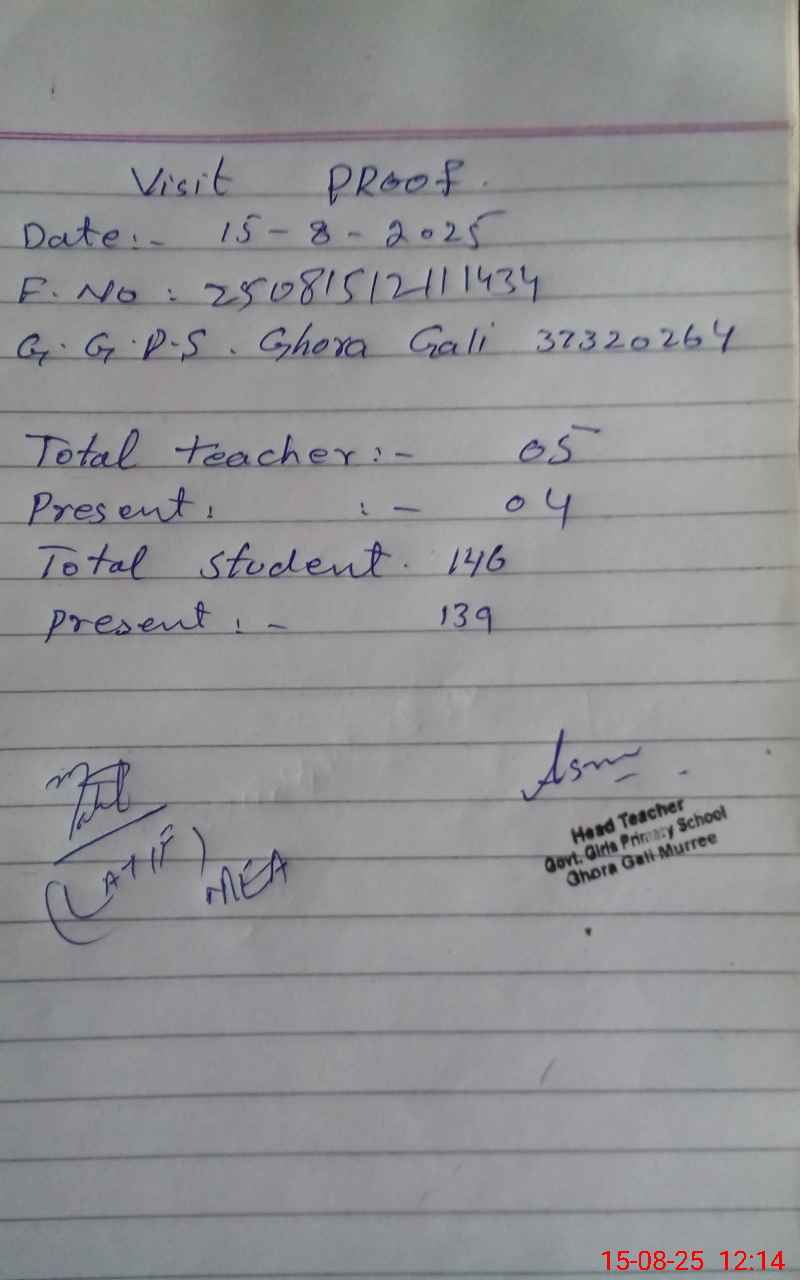 Visit PROOF.
Date:- 15-8-2025
F. No : 250815121111434
G. G. P.S. Ghora Gali 37320264
Total teacher:- 05
Present: :- 04
Total student. 146
present:- 139
(LATIF) MEA
Head Teacher
Govt. Girls Primary School
Ghora Gali-Murree
15-08-25 12:14